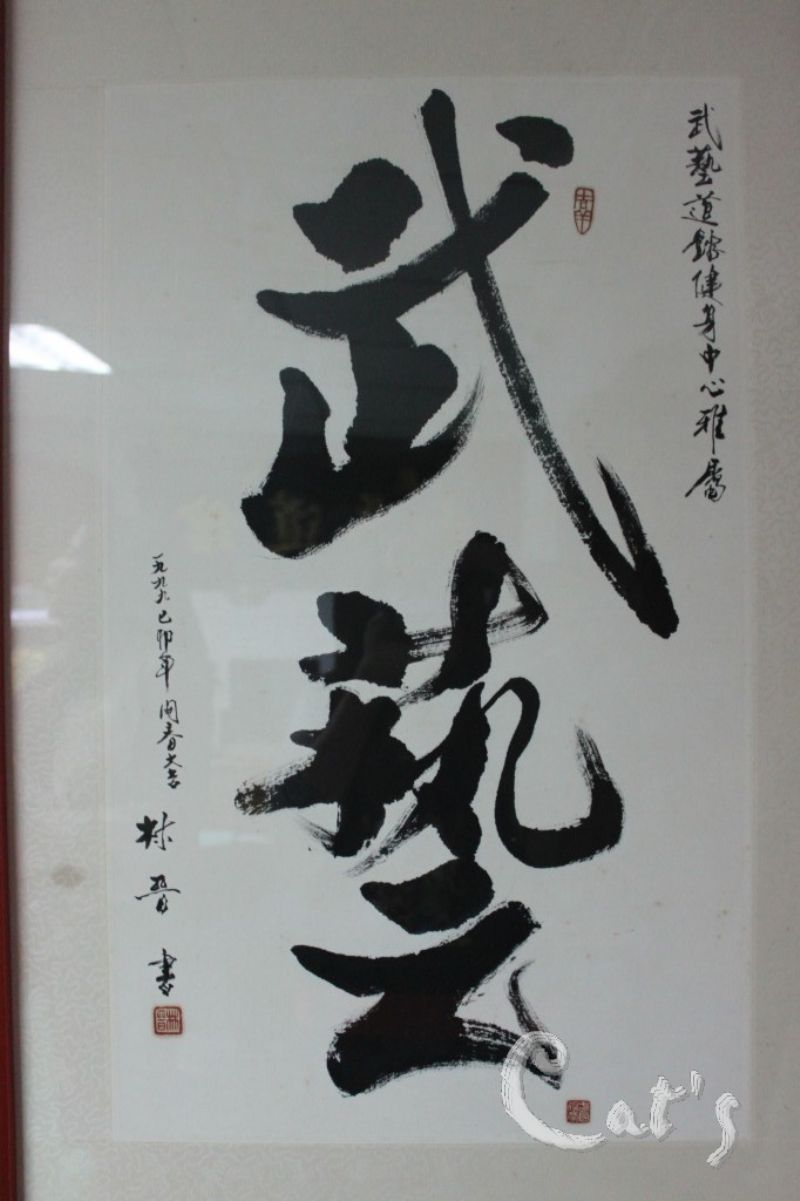 武藝道館健身中心雅屬
武藝
一九九九己卯年開春大吉
林晉書
Cat's